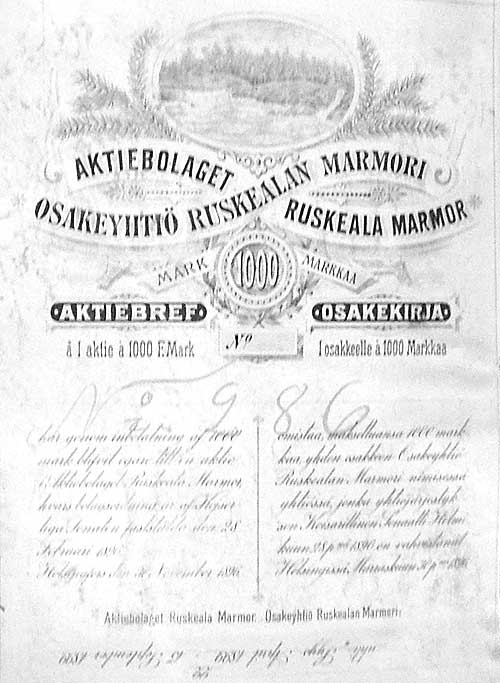 AKTIEBOLAGET
RUSKEALAN MARMORI
OSAKEYHTIÖ
RUSKEALA MARMOR
MARK 1000 MARKKAA
AKTIEBREF OSAKEKIRJA
Nº
å 1 aktie à 1000 F.Mark 1 osakkeelle à 1000 Markkaa
Nº 986
har genom inbetalning af 1000
mark blifvit egare till en aktie
i Aktiebolaget Ruskeala Marmor,
hvars bolagsordning är af Kejser-
liga Senaten fastställd den 28
Februari 1896.
Helsingfors den 30 November 1896.
omistaa, maksettuansa 1000 mark-
kaa, yhden osakkeen Osakeyhtiö
Ruskealan Marmori nimisessä
yhtiössä, jonka yhtiöjärjestyk-
sen Keisarillinen Senaatti Helmi-
kuun 28 p:nä 1896 on vahvistanut.
Helsingissä, Marraskuun 30 p:nä 1896.
Aktiebolaget Ruskeala Marmor. Osakeyhtiö Ruskealan Marmori:
April 1899 15 September 1899